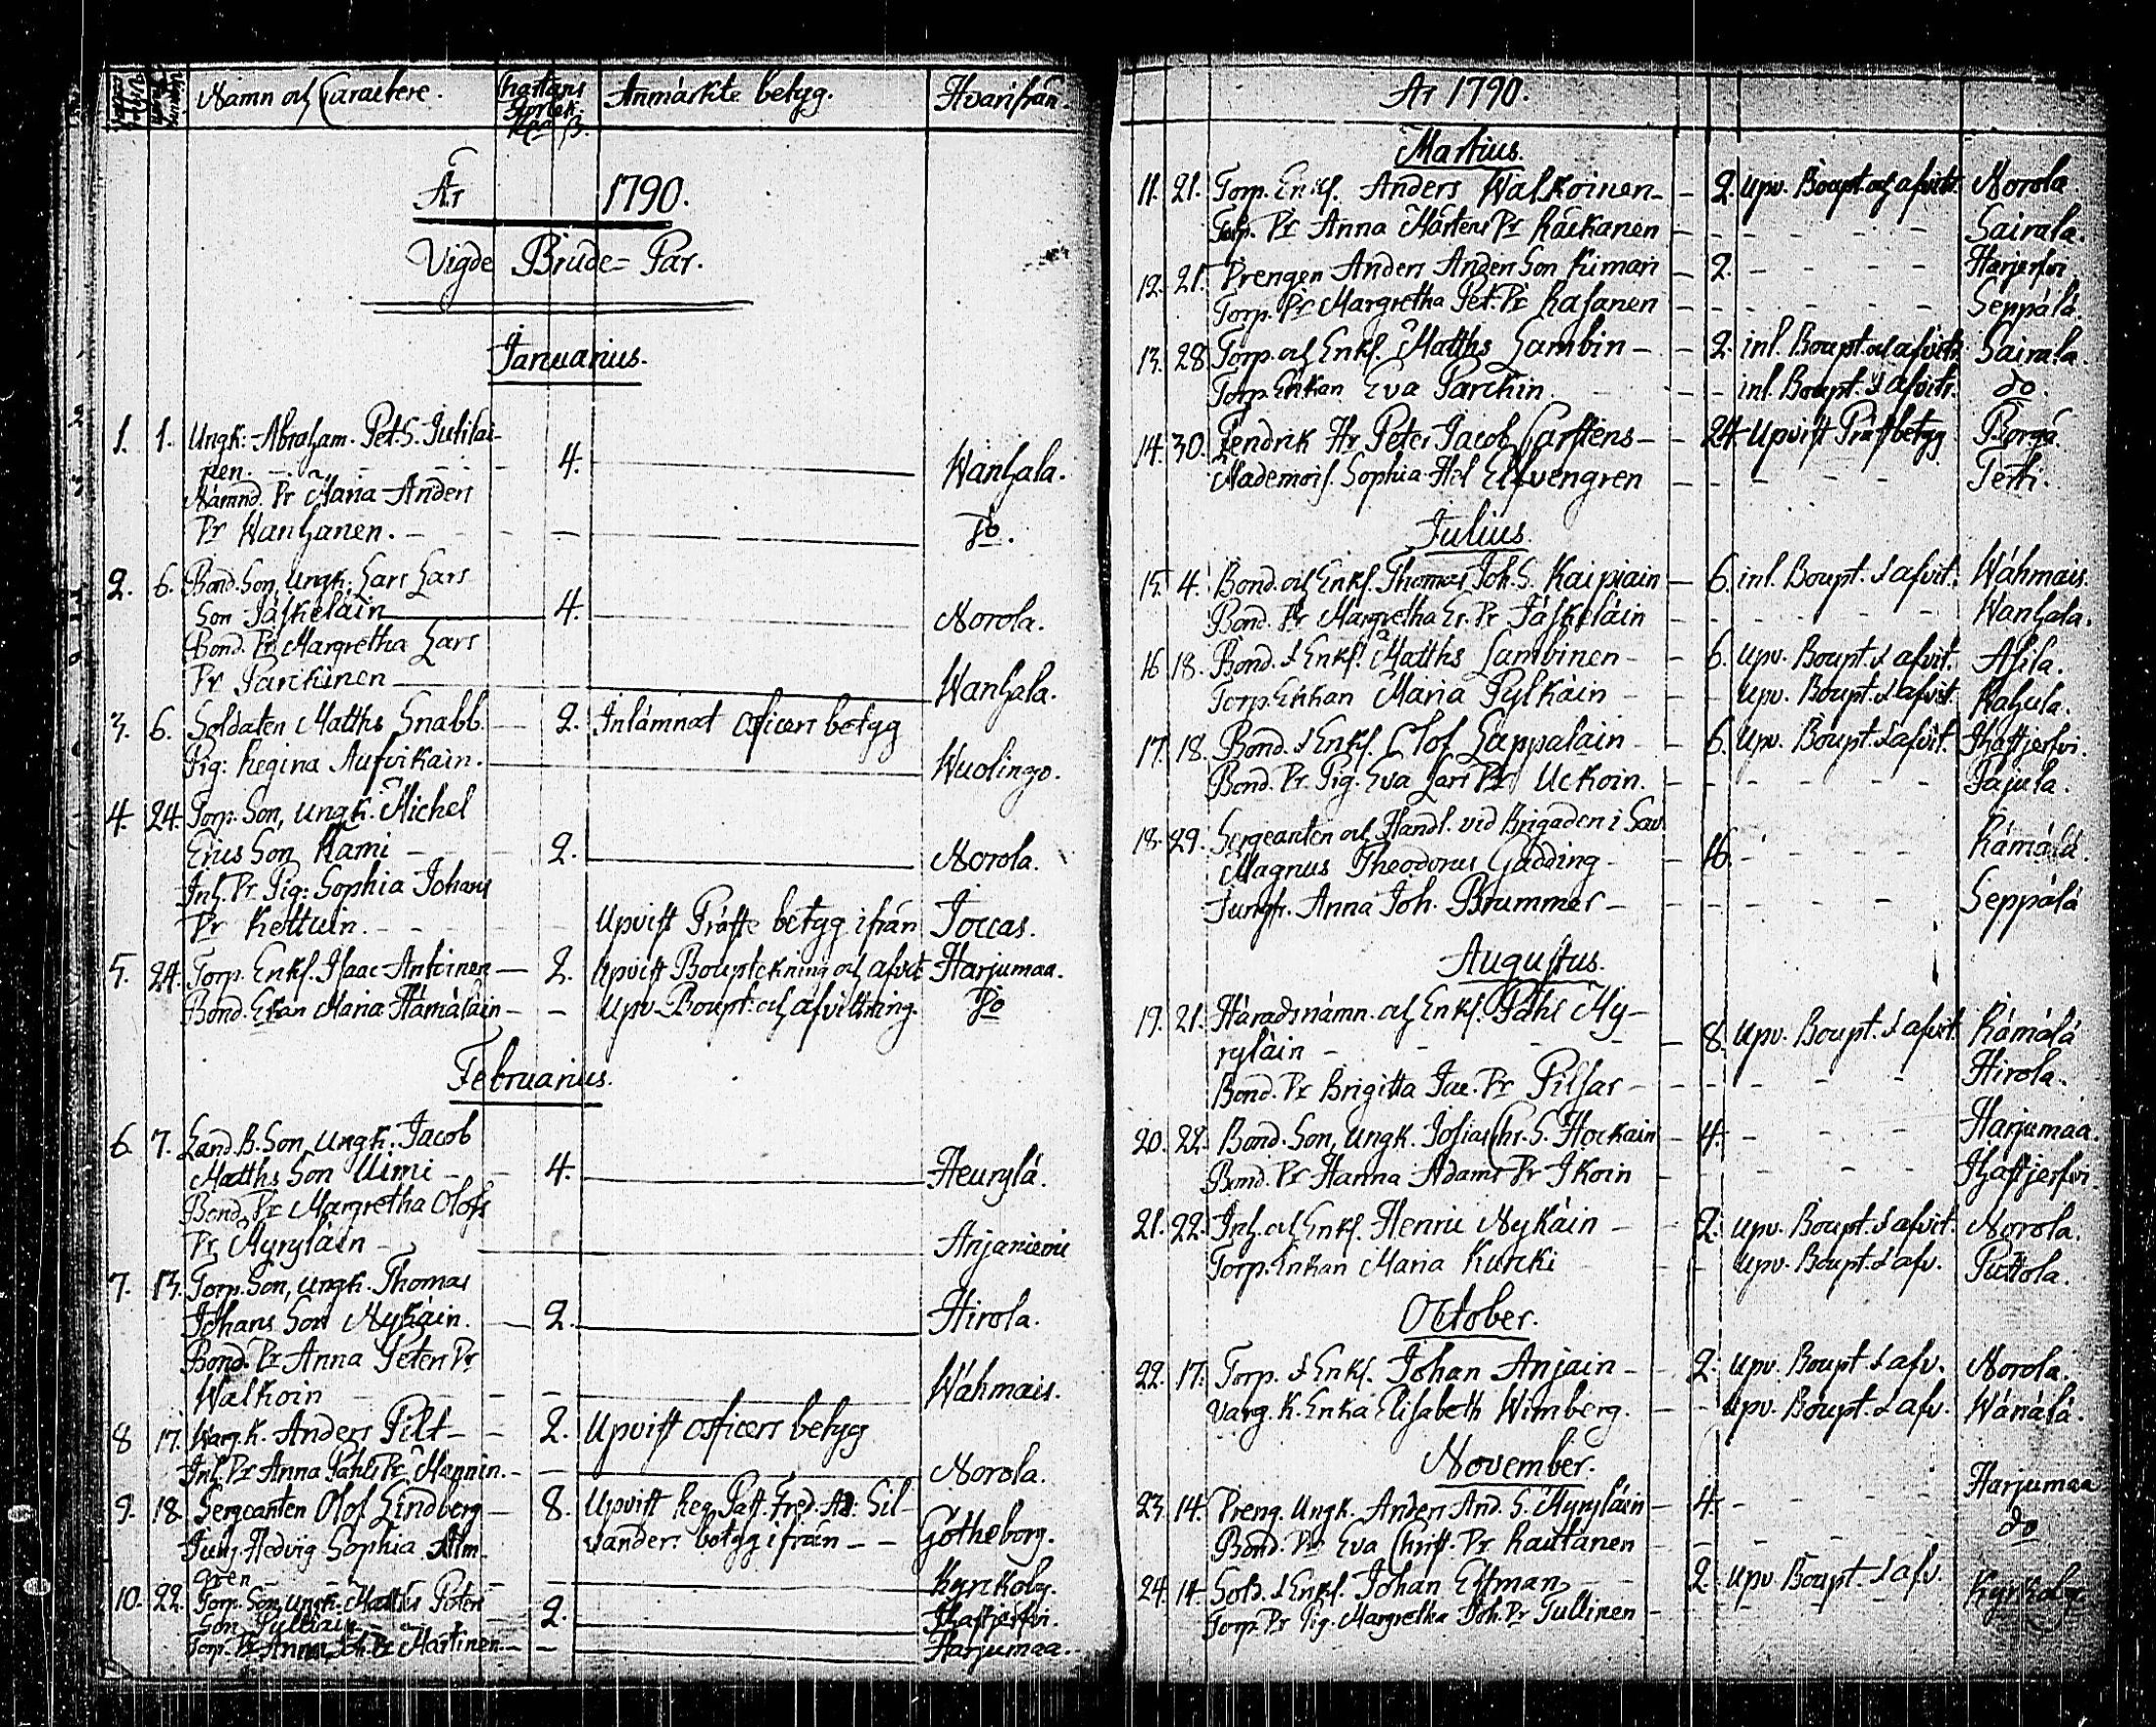 Namn och Caractere. Chartans Storlek. Anmärkte betyg. Hvarifrån.
År 1790.
Vigde Brude-Par.
Januarius.
1. 1. Ungk: Abraham Pet. S. Jutilai-
nen. 4. Wanhala.
Nämnd. Dr Maria Anders
Dr Wanhanen. Do.
2. 6. Bond. Son, Ungk. Lars Lars
Son Jäskeläin 4. Norola.
Bond. Dr Margretha Lars
Dr Parckinen Wanhala.
3. 6. Soldaten Matths Snabb. 2. Inlämnat Officers betyg
Pig: Regina Aufvikain. Wuolingo.
4. 24. Torp. Son, Ungk. Michel
Erics Son Kami 2. Norola.
Inh. Dr Pig: Sophia Johans
Dr Kettuin. Upvist Präste betyg ifrån Joccas.
5. 24. Torp. Enkl. Isaac Antoinen 2. Upvist Bouptekning och afvit Harjumaa.
Bond. Ekan Maria Hämäläin Upv. Boupt. och afvittring. Do
Februarius.
6. 7. Land B. Son, Ungk. Jacob
Matths Son Uimi 4. Heurylä.
Bond. Dr Margretha Olofs
Dr Myryläin Anjaniemi
7. 13. Torp. Son, Ungk. Thomas
Johans Son Nykäin. 2. Hirola.
Bond. Dr Anna Peters Dr
Walkoin Wähmais.
8 17. Warg. K. Anders Pilt 2. Upvist Officers betyg
Inh. Dr Anna Påhls Dr Mannin. Norola.
9. 18. Sergeanten Olof Lindberg 8. Upvist Reg. Past. Fred. Ad: Sil-
Jungf Hedvig Sophia Alm- vanders betyg ifrån Götheborg.
gren Kyrckoby.
10. 22. Torp. Son, Ungk. Matths Peters
Son Pulliain 2. Hastjerfvi.
Torp. Dr Anna Joh. Dr Martinen Harjumaa.
År 1790.
Martius.
11. 21. Torp. Enkl. Anders Walkoinen 2. Upv. Boupt. och afvitr. Norola
Torp. Dr Anna Mårtens Dr Räckanen Sairala.
12. 21. Drengen Anders Anders Son Kiman 2. Harjerfvi.
Torp. Dr Margretha Pet. Dr Rasanen Seppälä.
13. 28. Torp. och Enkl. Matths Lambin 2. inl. Boupt. och afvitr. Sairala.
Torp. Enkan Eva Parckin inl. Boupt. & afvitr. do.
14. 30. Fendrik Hr Peter Jacob Carstens 24 Upvist Präst betyg Borgå.
Mademois. Sophia Hel Elfvengren Tetti.
Julius.
15. 4. Bond. och Enkl. Thomas Joh. S. Kaipiain 6. inl. Boupt. & afvit. Wähmais.
Bond. Dr Margretha Er. Dr Jäskeläin Wanhala.
16 18. Bond. & Enkl. Matths Lambinen 6. Upv. Boupt. & afvit. Asila.
Torp. Enkan Maria Pylkäin Upv. Boupt. & afvit. Rahula.
17. 18. Bond. & Enkl. Olof Lappalain 6. Upv. Boupt. & afvit. Hastjerfvi.
Bond. Dr Pig. Eva Lars Dr Uckoin. Pajula.
18. 29. Sergeanten och Handl. vid Brigaden i Sav
Magnus Theodorus Gadding 16. Rämälä.
Jungfr. Anna Joh. Brummer Seppälä
Augustus.
19. 21. Häradsnämn. och Enkl. Påhl My-
ryläin 8. Upv. Boupt. & afvit. Rämälä
Bond. Dr Brigitta Jac. Dr Pilhar Hirola.
20. 22. Bond. Son, Ungk. Josias Chr. S. Hockain 4. Harjumaa.
Bond. Dr Hanna Adams Dr Ikoin Hastjerfvi.
21. 22. Inh. och Enkl. Henric Nykäin 2. Upv. Boupt. & afvit. Norola.
Torp. Enkan Maria Kurcki Upv. Boupt. & afv. Puttola.
October.
22. 17. Torp. & Enkl. Johan Anjain 2. Upv. Boupt. & afv. Norola.
Varg. K. Enka Elisabeth Wimberg. Upv. Boupt. & afv. Wänälä.
November.
23. 14. Dreng. Ungk. Anders And. S. Myryläin 4. Harjumaa
Bond. Dr Eva Christ. Dr Rautanen do
24. 14. Sold. & Enkl. Johan Ekman 2. Upv. Boupt. & afv. Kyrkoby
Torp. Dr Pig. Margretha Joh. Dr Tullinen